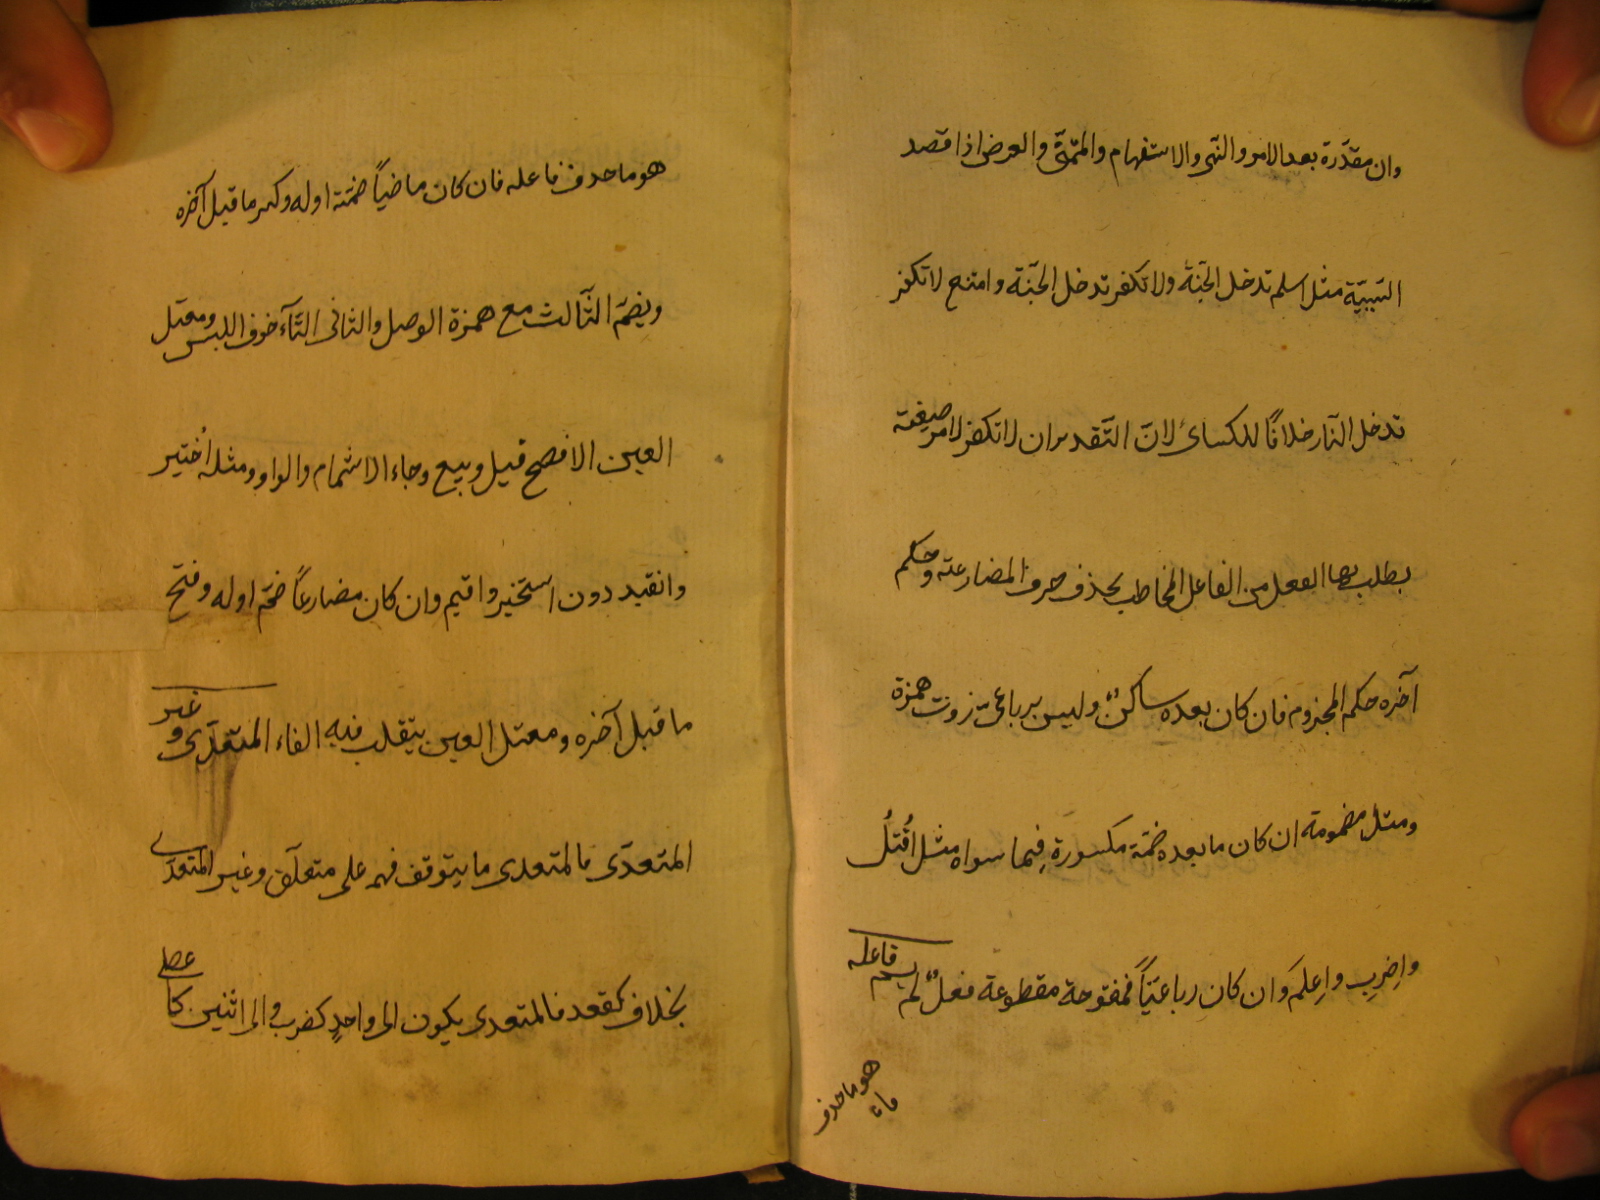 وان مقدّرة بعد الامر والنهى والاستفهام والتمنّى والعرض اذا قصد
السّببيّة مثل اسلم تدخل الجنّة ولا تكفر تدخل الجنّة وامتنع لا تكفر
تدخل النّار خلافاً للكسائى لانّ التّقدير ان لا تكفر لامر صيغته
يطلب بها الفعل من الفاعل المخاطب بحذف حرف المضارعته وحكم
آخره حكم المجزوم فان كان بعده ساكنٌ وليس برباعى زوت همزة
ومثل مضمومة ان كان ما بعده ضمّة مكسورة فيما سواه مثل اُقْتُلُ
واِضرِب واِعلَم وان كان رباعيّاً فمفتوحة مقطوعة فعلٌ لم يسم فاعله
هو ما حذف
هو ما حذف فاعله فان كان ماضياً ضمّة اوله وكسر ما قبل آخره
ويضمّ الثّالث مع همزة الوصل والثانى التّآء خوف اللبس ومعتل
العين الافصح قيل وبيع وجاء الاشمام والواو ومثله اُختير
وانقيد دون استخير واقيم وان كان مضارعاً ضمّ اوله وفتح
ما قبل آخره ومعتل العين ينقلب فيه الفاء المتعدّى وغير
المتعدّى فالمتعدى ما يتوقف فهمه على متعلّق وغير المتعدّى
بخلافه كقعد فالمتعدى يكون الى واحدٍ كضرب والى اثنين كاعطى